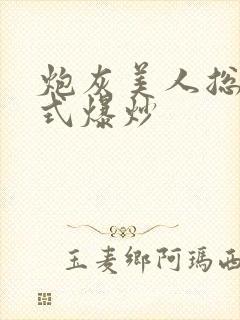 炮灰美人总
式爆炒
玉麦乡阿玛西